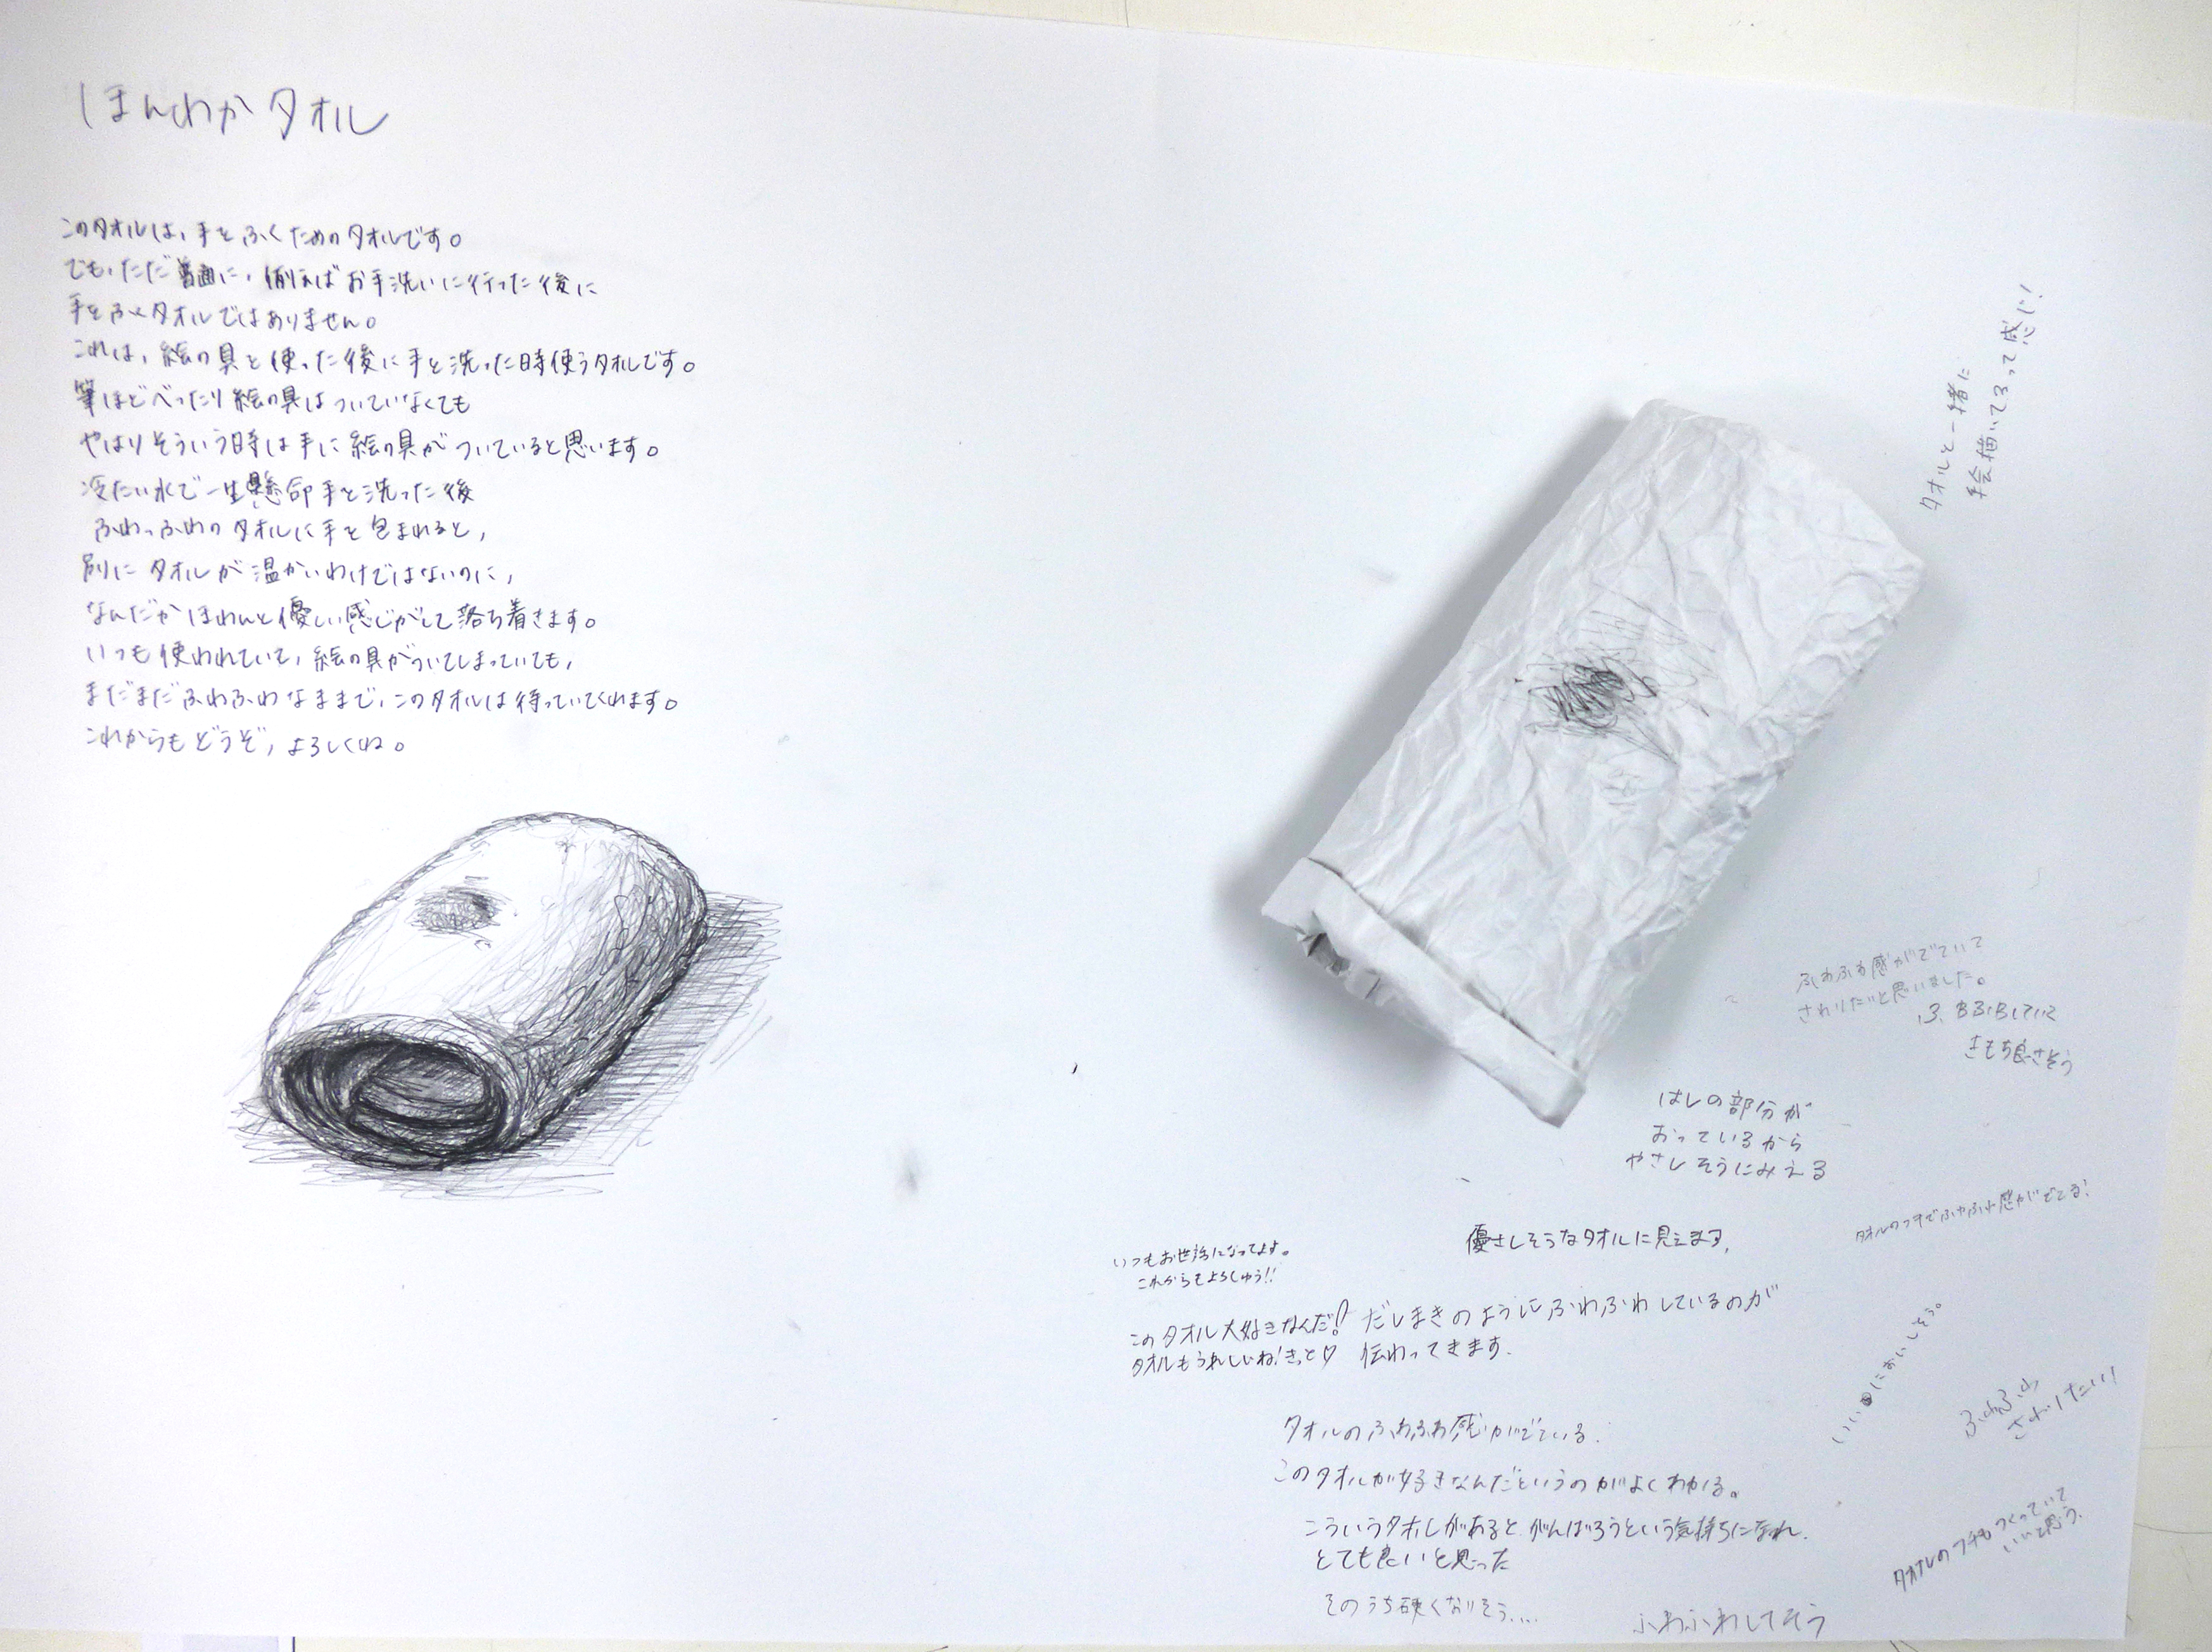 ほんわかタオル
このタオルは、手をふくためのタオルです。
でも、ただ普通に、例えばお手洗いに行った後に
手をふくタオルではありません。
これは、絵の具を使った後に手を洗った時使うタオルです。
筆ほどべったり絵の具はついていなくても
やはりそういう時は手に絵の具がついていると思います。
冷たい水で一生懸命手を洗った後
ふわっふわのタオルに手を包まれると、
別にタオルが温かいわけではないのに、
なんだかほわんと優しい感じがして落ち着きます。
いつも使われていて、絵の具がついてしまっていても、
まだまだふわふわなままで、このタオルは待っていてくれます。
これからもどうぞ、よろしくね。
タオルと一緒に
絵描いてるって感じ!
ふわふわ感がでていて
さわりたいと思いました。
きもち良さそう
はしの部分が
おっているから
やさしそうにみえる
タオルのフチでふわふわ感がでてる!
優さしそうなタオルに見えます。
いつもお世話になってよす。
これからもよろしゅう!!
このタオル大好きなんだ!
タオルもうれしいね!きっと♡
だしまきのようにふわふわしているのが
伝わってきます。
いいにおいしそう。
ふわふわ
さわりたい!
タオルのふわふわ感がでている。
このタオルが好きなんだというのがよくわかる。
こういうタオルがあると、がんばろうという気持ちになれ、
とても良いと思った
タオルのフチもつくっていて
いいと思う。
そのうち硬くなりそう....
ふわふわしてそう